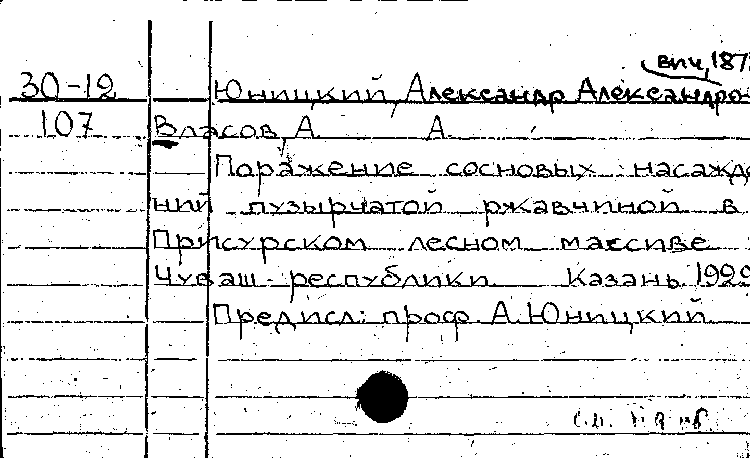 вич, 187
30-12 Юницкий, Александр Александро-
107 Власов, А. А.
Поражение сосновых насажде
ний пузырчатой ржавчиной в
Присурском лесном массиве
Чуваш. республики. Казань. 1929
Предисл.: проф. А. Юницкий